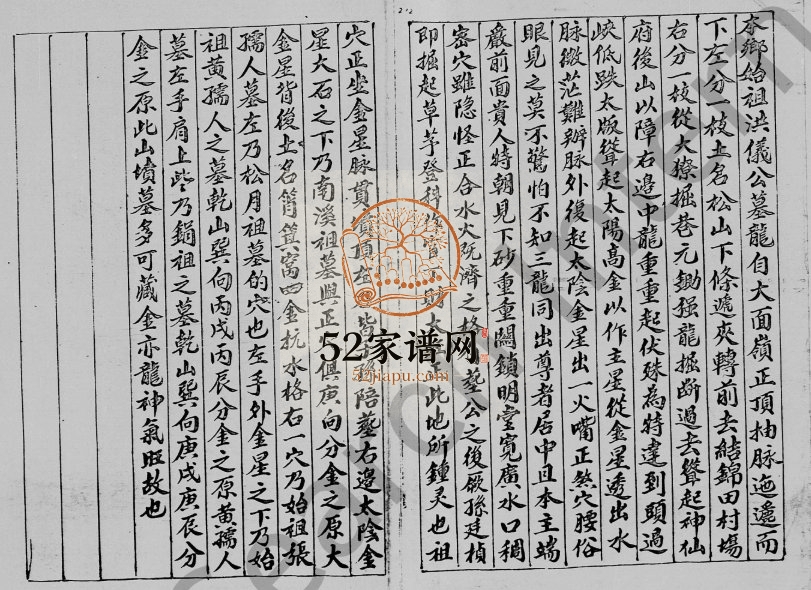 本鄉始祖洪儀公墓龍自大面嶺正頂抽脉迤邐而
下左分一枝土名松山下條遞夾轉前去結錦田村場
右分一枝從大獠掘巷元鋤强龍掘斷過去聳起神仙
府後山以障右邊中龍重重起伏殊為特達到頭過
峽低跌太版聳起太陽高金以作主星從金星透出水
脉微茫難辨脉外復起太陰金星出一火嘴正煞穴腰俗
眼見之莫不驚怕不知三龍同出尊者居中且本主端
嚴前面貴人特朝見下砂重重關鎖明堂寬廣水口稠
密穴雖隐怪正合水火既濟之格葬公之後厥孫廷楨
即掘起草茅登科 財 此地所鍾灵也祖
穴正坐金星脉貫 頂左 皆 陪塟右邊太陰金
星大石之下乃南溪祖墓與正 俱庚向分金之原大
金星背後土名筲箕窩四金杭水格右一穴乃始祖張
孺人墓左乃松月祖墓的穴也左手外金星之下乃始
祖黄孺人之墓乾山巽向丙戌丙辰分金之原黄孺人
墓左手肩上些乃鍋祖之墓乾山巽向庚戌庚辰分
金之原此山墳墓多可藏金亦龍神氣旺故也
52家谱网
52jiapu.com
Search Intern